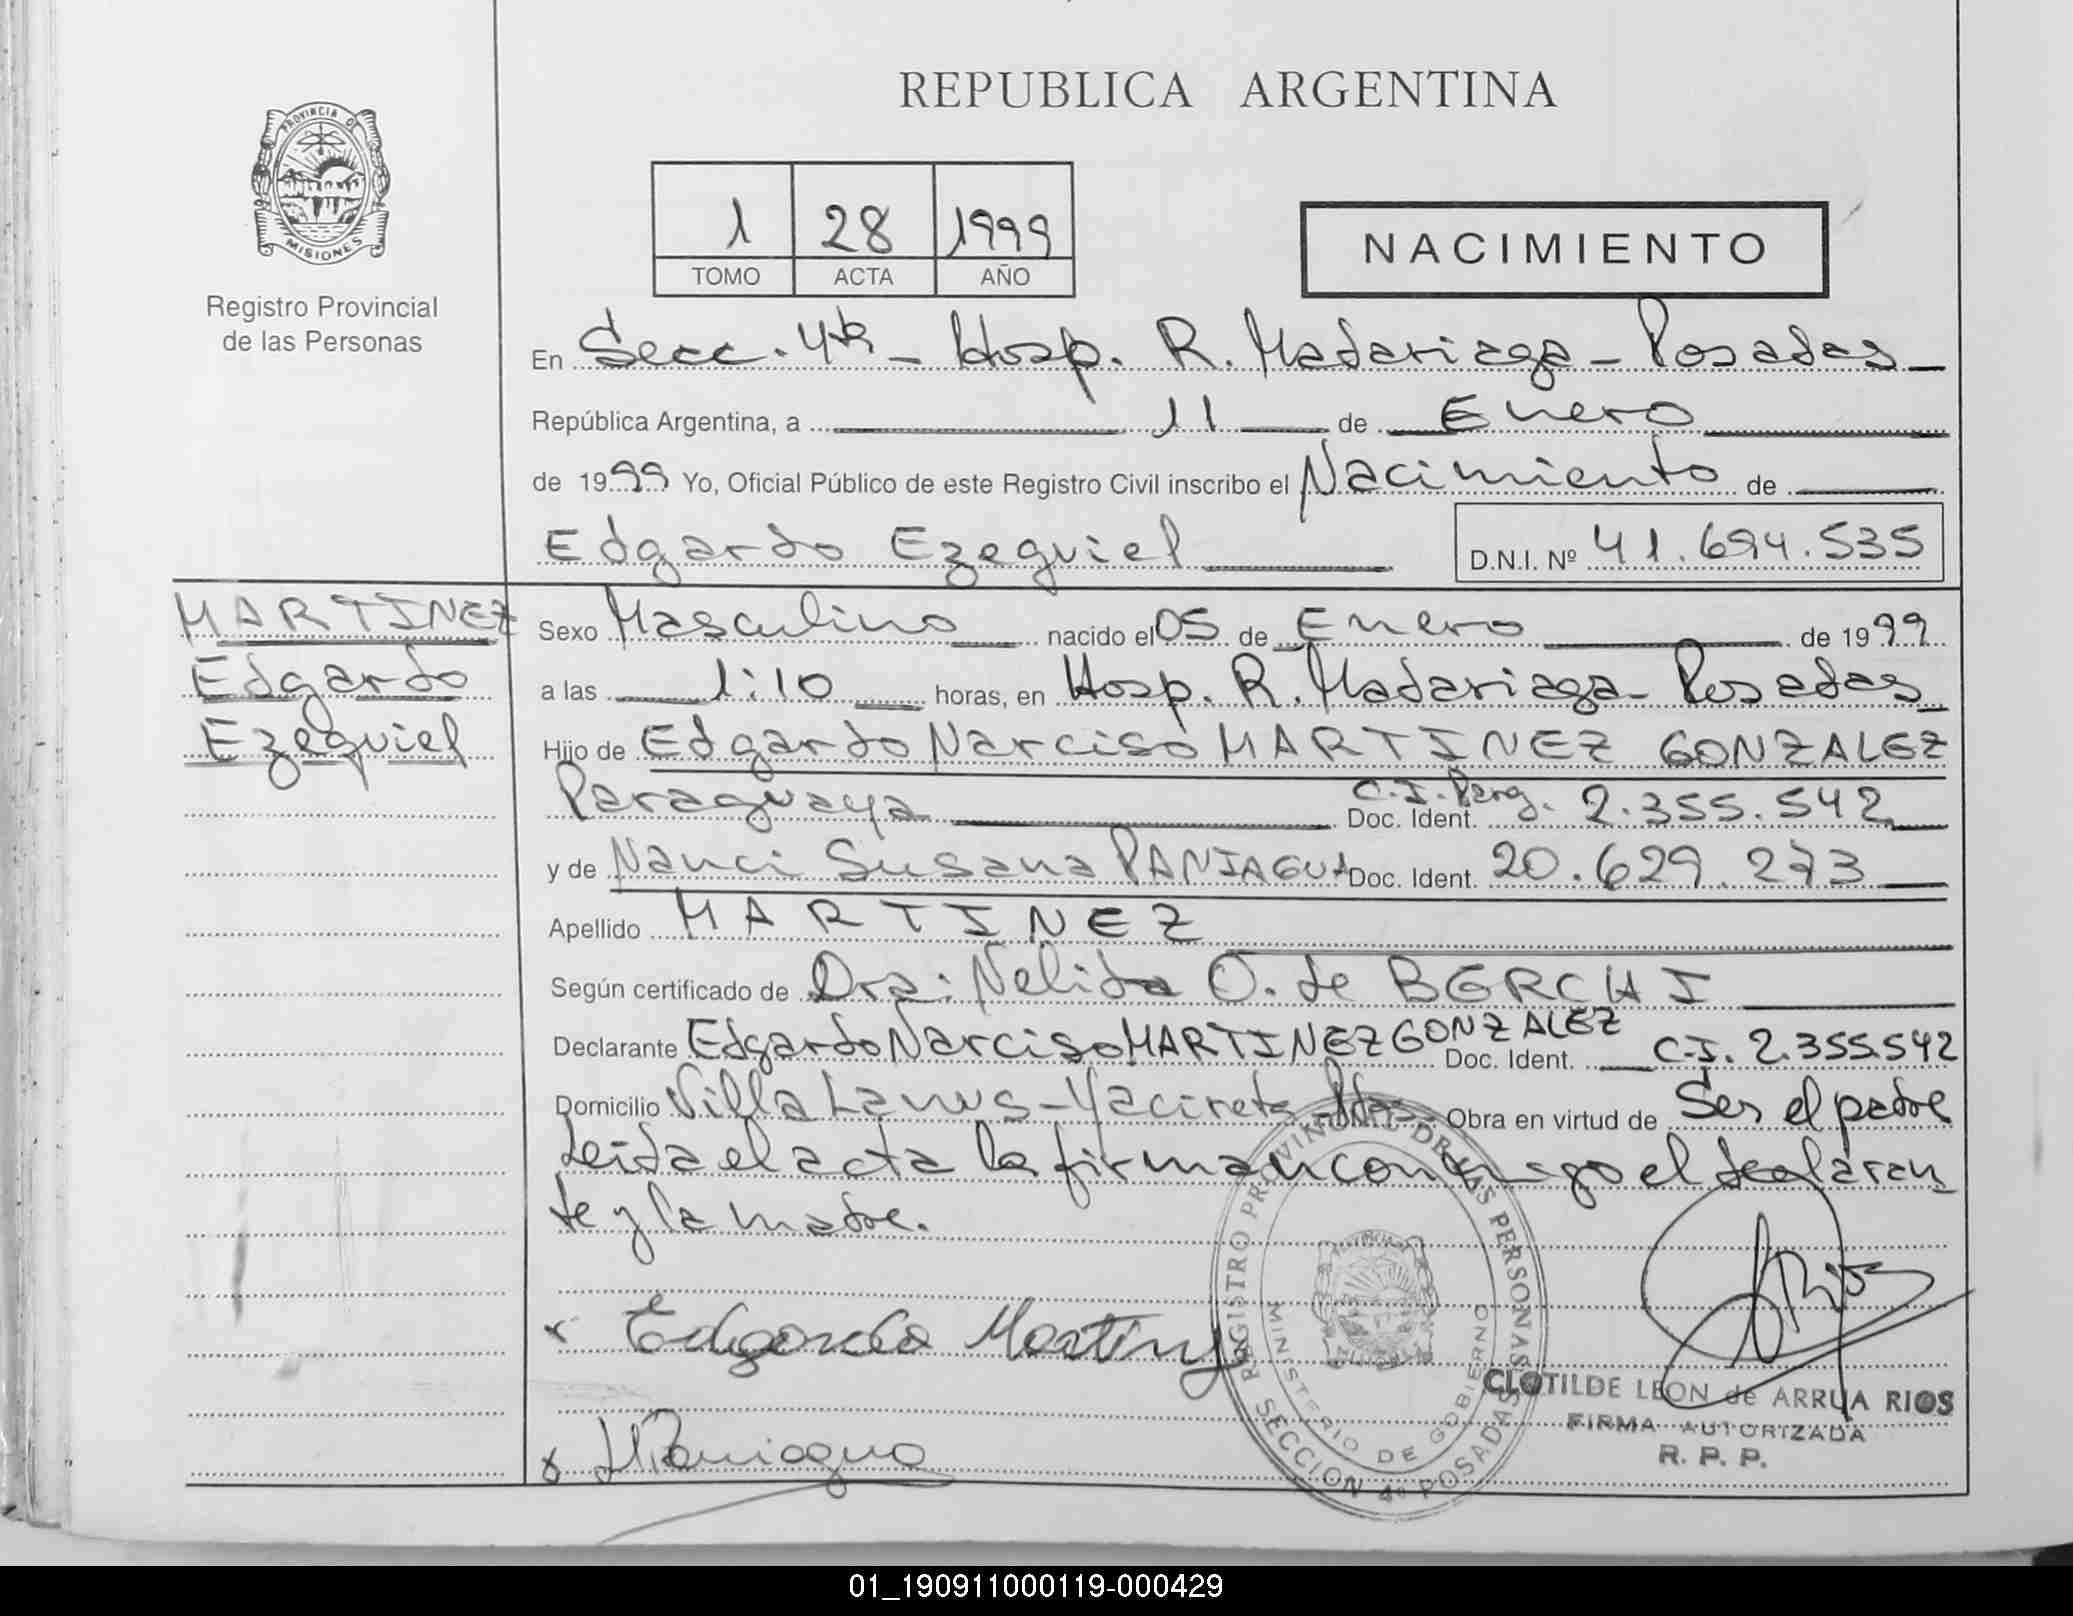 REPUBLICA ARGENTINA
PROVINCIA DE
MISIONES
Registro Provincial
de las Personas
1 28 1999
TOMO ACTA AÑO
NACIMIENTO
En Secc. 4ta - Hosp. R. Madariaga - Posadas
República Argentina, a 11 de Enero
de 1999 Yo, Oficial Público de este Registro Civil inscribo el Nacimiento de
Edgardo Ezequiel D.N.I. Nº 41.694.535
MARTINEZ
Edgardo
Ezequiel
Sexo Masculino nacido el 05 de Enero de 1999
a las 1:10 horas, en Hosp. R. Madariaga - Posadas
Hijo de Edgardo Narciso MARTINEZ GONZALEZ
Paraguaya C.I. Parg. Doc. Ident. 2.355.542
y de Nanci Susana PANIAGUA Doc. Ident. 20.629.273
Apellido MARTINEZ
Según certificado de Dra: Nelida O. de BERCHI
Declarante Edgardo Narciso MARTINEZ GONZALEZ Doc. Ident. C.I. 2.355.542
Domicilio Villa Lanus - Yacireta - Pdas Obra en virtud de Ser el padre
Leida el acta la firman conmigo el declaran
te y la madre.
x Edgardo Martinez
x Paniagua
REGISTRO PROVINCIAL DE LAS PERSONAS
MINISTERIO DE GOBIERNO
SECCION 4º POSADAS
CLOTILDE LEON de ARRUA RIOS
FIRMA AUTORIZADA
R. P. P.
01_190911000119-000429